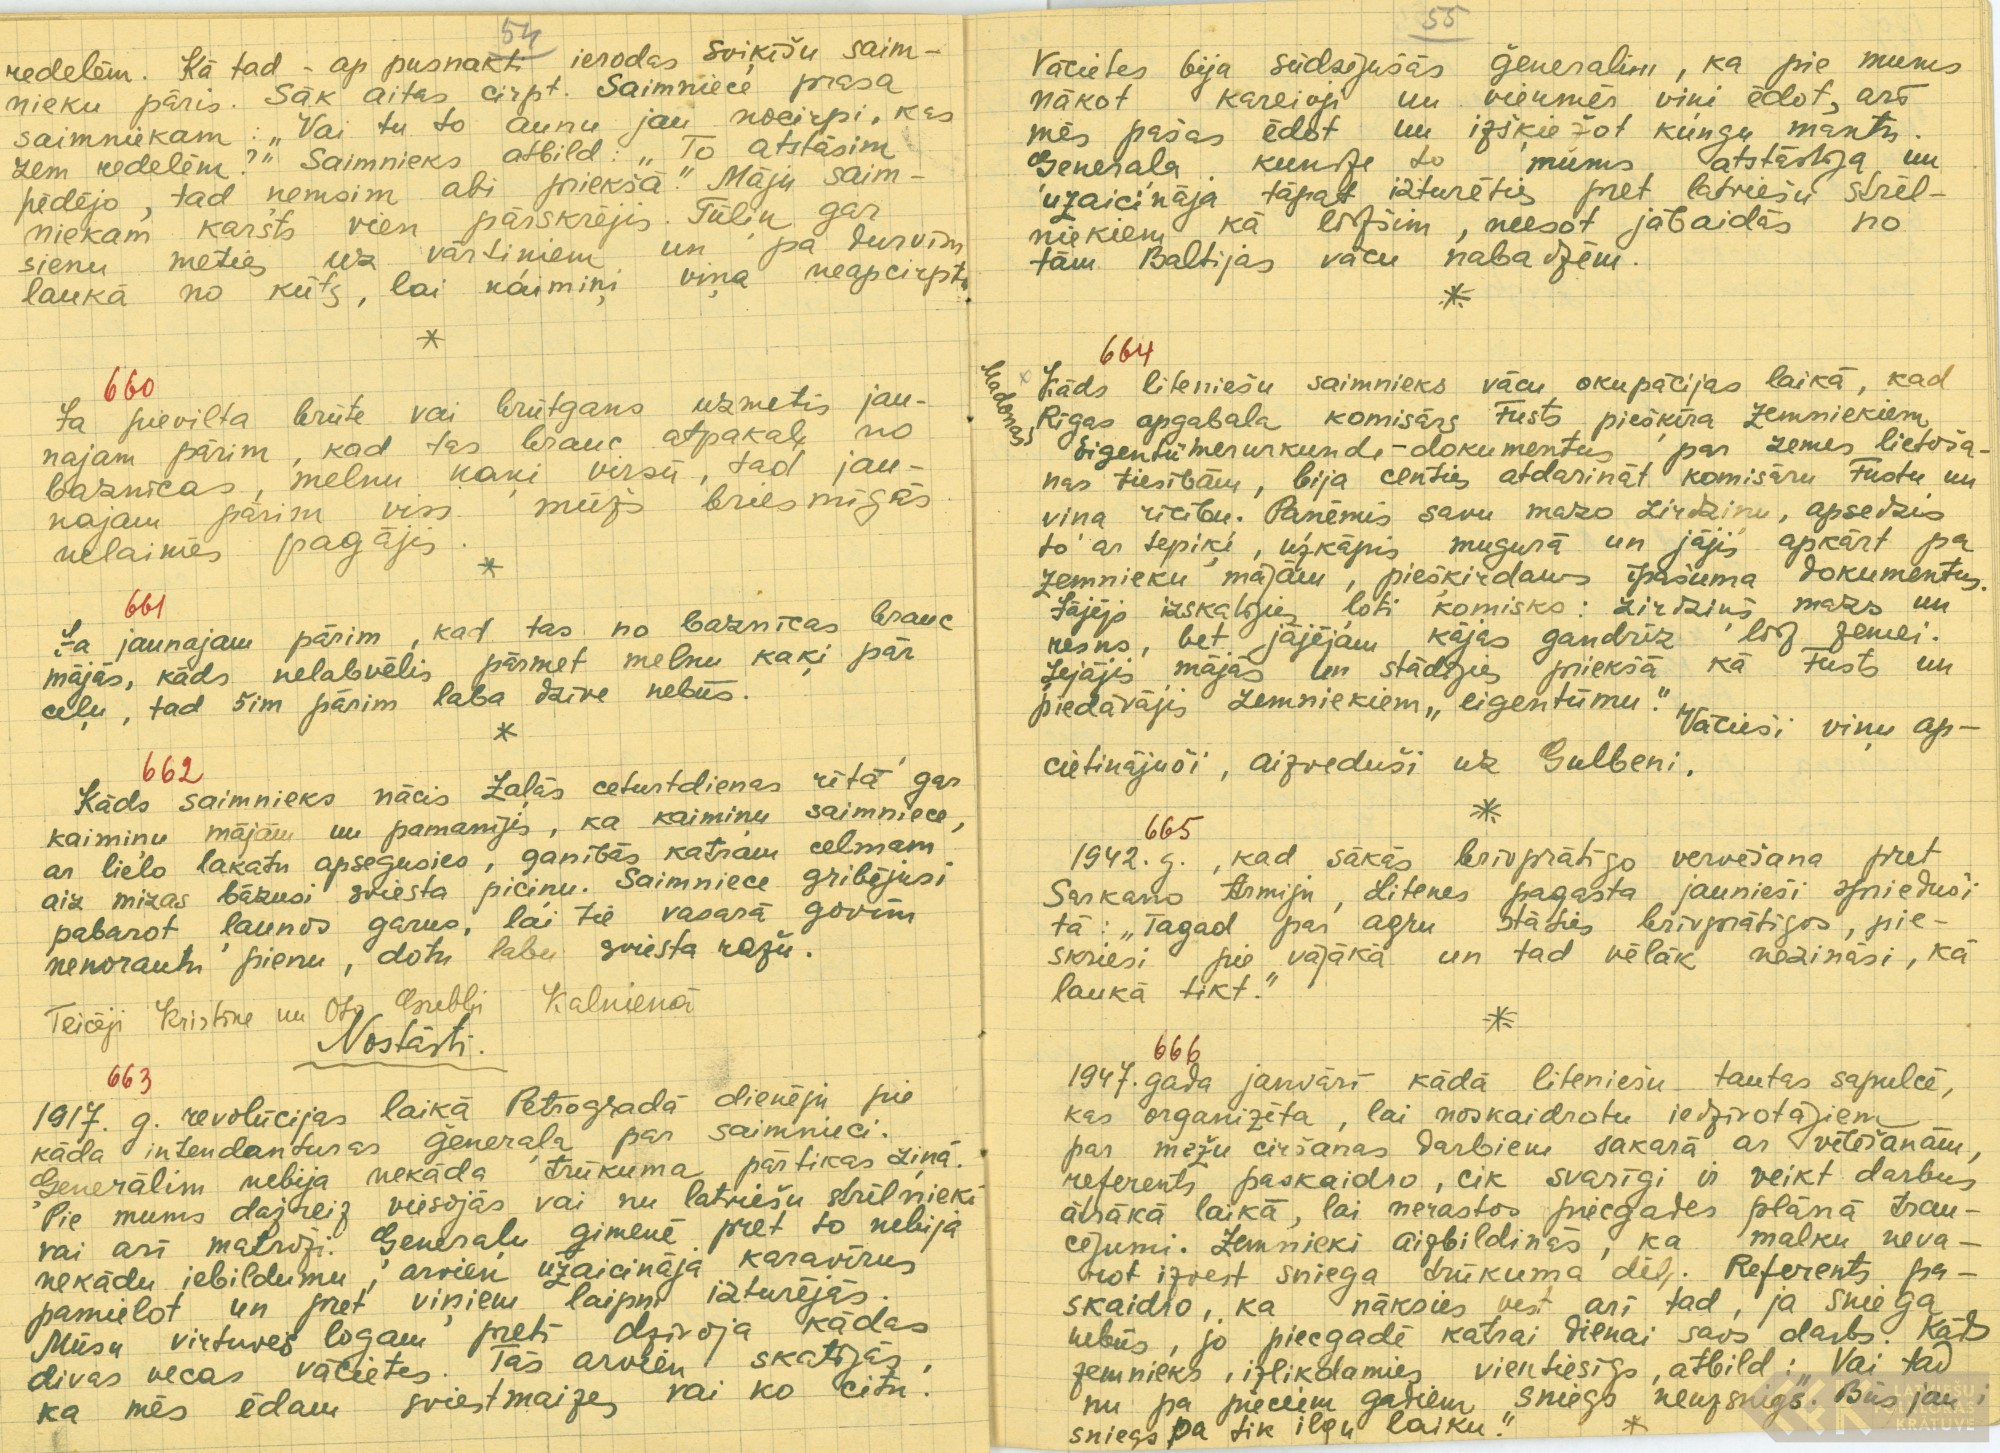 54
redelēm. Kā tad - ap pusnakti ierodas Sviķīšu saim-
nieku pāris. Sāk aitas cirpt. Saimniece prasa
saimniekam: „Vai tu to aunu jau nocirpi, kas
zem redelēm?" Saimnieks atbild: „To atstāsim
pēdējo, tad ņemsim abi priekšā." Māju saim-
niekam karsts vien pārskrējis. Tūliņ gar
sienu meties uz vārtiņiem un pa durvīm
laukā no kūts, lai kaimiņi viņa neapcirptu
*
660
Ja pievilta brūte vai brūtgans uzmetīs jau-
najam pārim, kad tas brauc atpakaļ no
baznīcas, melnu kaķi virsū, tad jau-
najam pārim viss mūžs briesmīgās
nelaimēs pagājis.
*
661
Ja jaunajam pārim, kad tas no baznīcas brauc
mājās, kāds nelabvēlis pārmet melnu kaķi pār
ceļu, tad šim pārim laba dzīve nebūs.
*
662
Kāds saimnieks nācis Zaļās ceturtdienas rītā gar
kaimiņu mājām un pamanījis, ka kaimiņu saimniece,
ar lielo lakatu apsegusies, ganībās katram celmam
aiz mizas bāzusi sviesta piciņu. Saimniece gribējusi
pabarot ļaunos garus, lai tie vasarā govīm
nenorautu pienu, dotu labu sviesta ražu.
Teicēji Kristīne un Oto Grubbji Kalnienā
Nostāsti.
663
1917. g. revolūcijas laikā Petrogradā dienēju pie
kāda intendanturas ģeneraļa par saimnieci.
Ģenerālim nebija nekāda trūkuma pārtikas ziņā.
Pie mums dažreiz viesojās vai nu latviešu strēlnieki
vai arī matroži. Ģeneraļu ģimenē pret to nebija
nekādu iebildumu, arvien uzaicināja karavīrus
pamielot un pret viņiem laipni izturējās.
Mūsu virtuves logam pretī dzīvoja kādas
divas vecas vācietes. Tās arvien skatījās,
ka mēs ēdam sviestmaizes vai ko citu.
55
Vācietes bija sūdzējušās ģeneralim, ka pie mums
nākot kareivji un vienmēr viņi ēdot, arī
mēs pašas ēdot un izšķiežot kungu mantu.
Ģeneraļa kundze to mums atstāstīja un
uzaicināja tāpat izturēties pret latviešu strēl-
niekiem kā līdzšim, neesot jābaidās no
tām Baltijas vācu nabadzēm.
*
664
Madonas
x
Kāds liteniešu saimnieks vācu okupācijas laikā, kad
Rīgas apgabala komisārs Fusts piešķīra zemniekiem
Eigentümerurkunde-dokumentus par zemes lietoša-
nas tiesībām, bija centies atdarināt komisāru Fustu un
viņa rīcību. Paņēmis savu mazo zirdziņu, apsedzis
to ar tepiķi, uzkāpis mugurā un jājis apkārt pa
zemnieku mājām, piešķirdams īpašuma dokumentus.
Jājējs izskatījies ļoti komisks: zirdziņš mazs un
resns, bet jājējam kājas gandrīz līdz zemei.
Iejājis mājās un stādījies priekšā kā Fusts un
piedāvājis zemniekiem „eigentūmu". Vācieši viņu ap-
cietinājuši, aizveduši uz Gulbeni.
*
665
1942. g., kad sākās brīvprātīgo vervēšana pret
Sarkano Armiju, Litenes pagasta jaunieši sprieduši
tā: „Tagad par agru stāties brīvprātīgos, pie-
skriesi pie vājākā un tad vēlāk nezināsi, kā
laukā tikt."
*
666
1947. gada janvārī kādā liteniešu tautas sapulcē,
kas organizēta, lai noskaidrotu iedzīvotājiem
par mežu ciršanas darbiem sakarā ar vēlēšanām,
referents paskaidro, cik svarīgi ir veikt darbus
ātrākā laikā, lai nerastos piecgades plānā trau-
cējumi. Zemnieki aizbildinās, ka malku neva-
rot izvest sniega trūkuma dēļ. Referents pa-
skaidro, ka nāksies vest arī tad, ja sniega
nebūs, jo piecgadē katrai dienai savs darbs. Kāds
zemnieks, izlikdamies vientiesīgs, atbild: „Vai tad
nu pa pieciem gadiem sniegs neuzsnigs. Būs jau i
sniegs pa tik ilgu laiku." *
LATVIEŠU
FOLKLORAS
KRĀTUVE